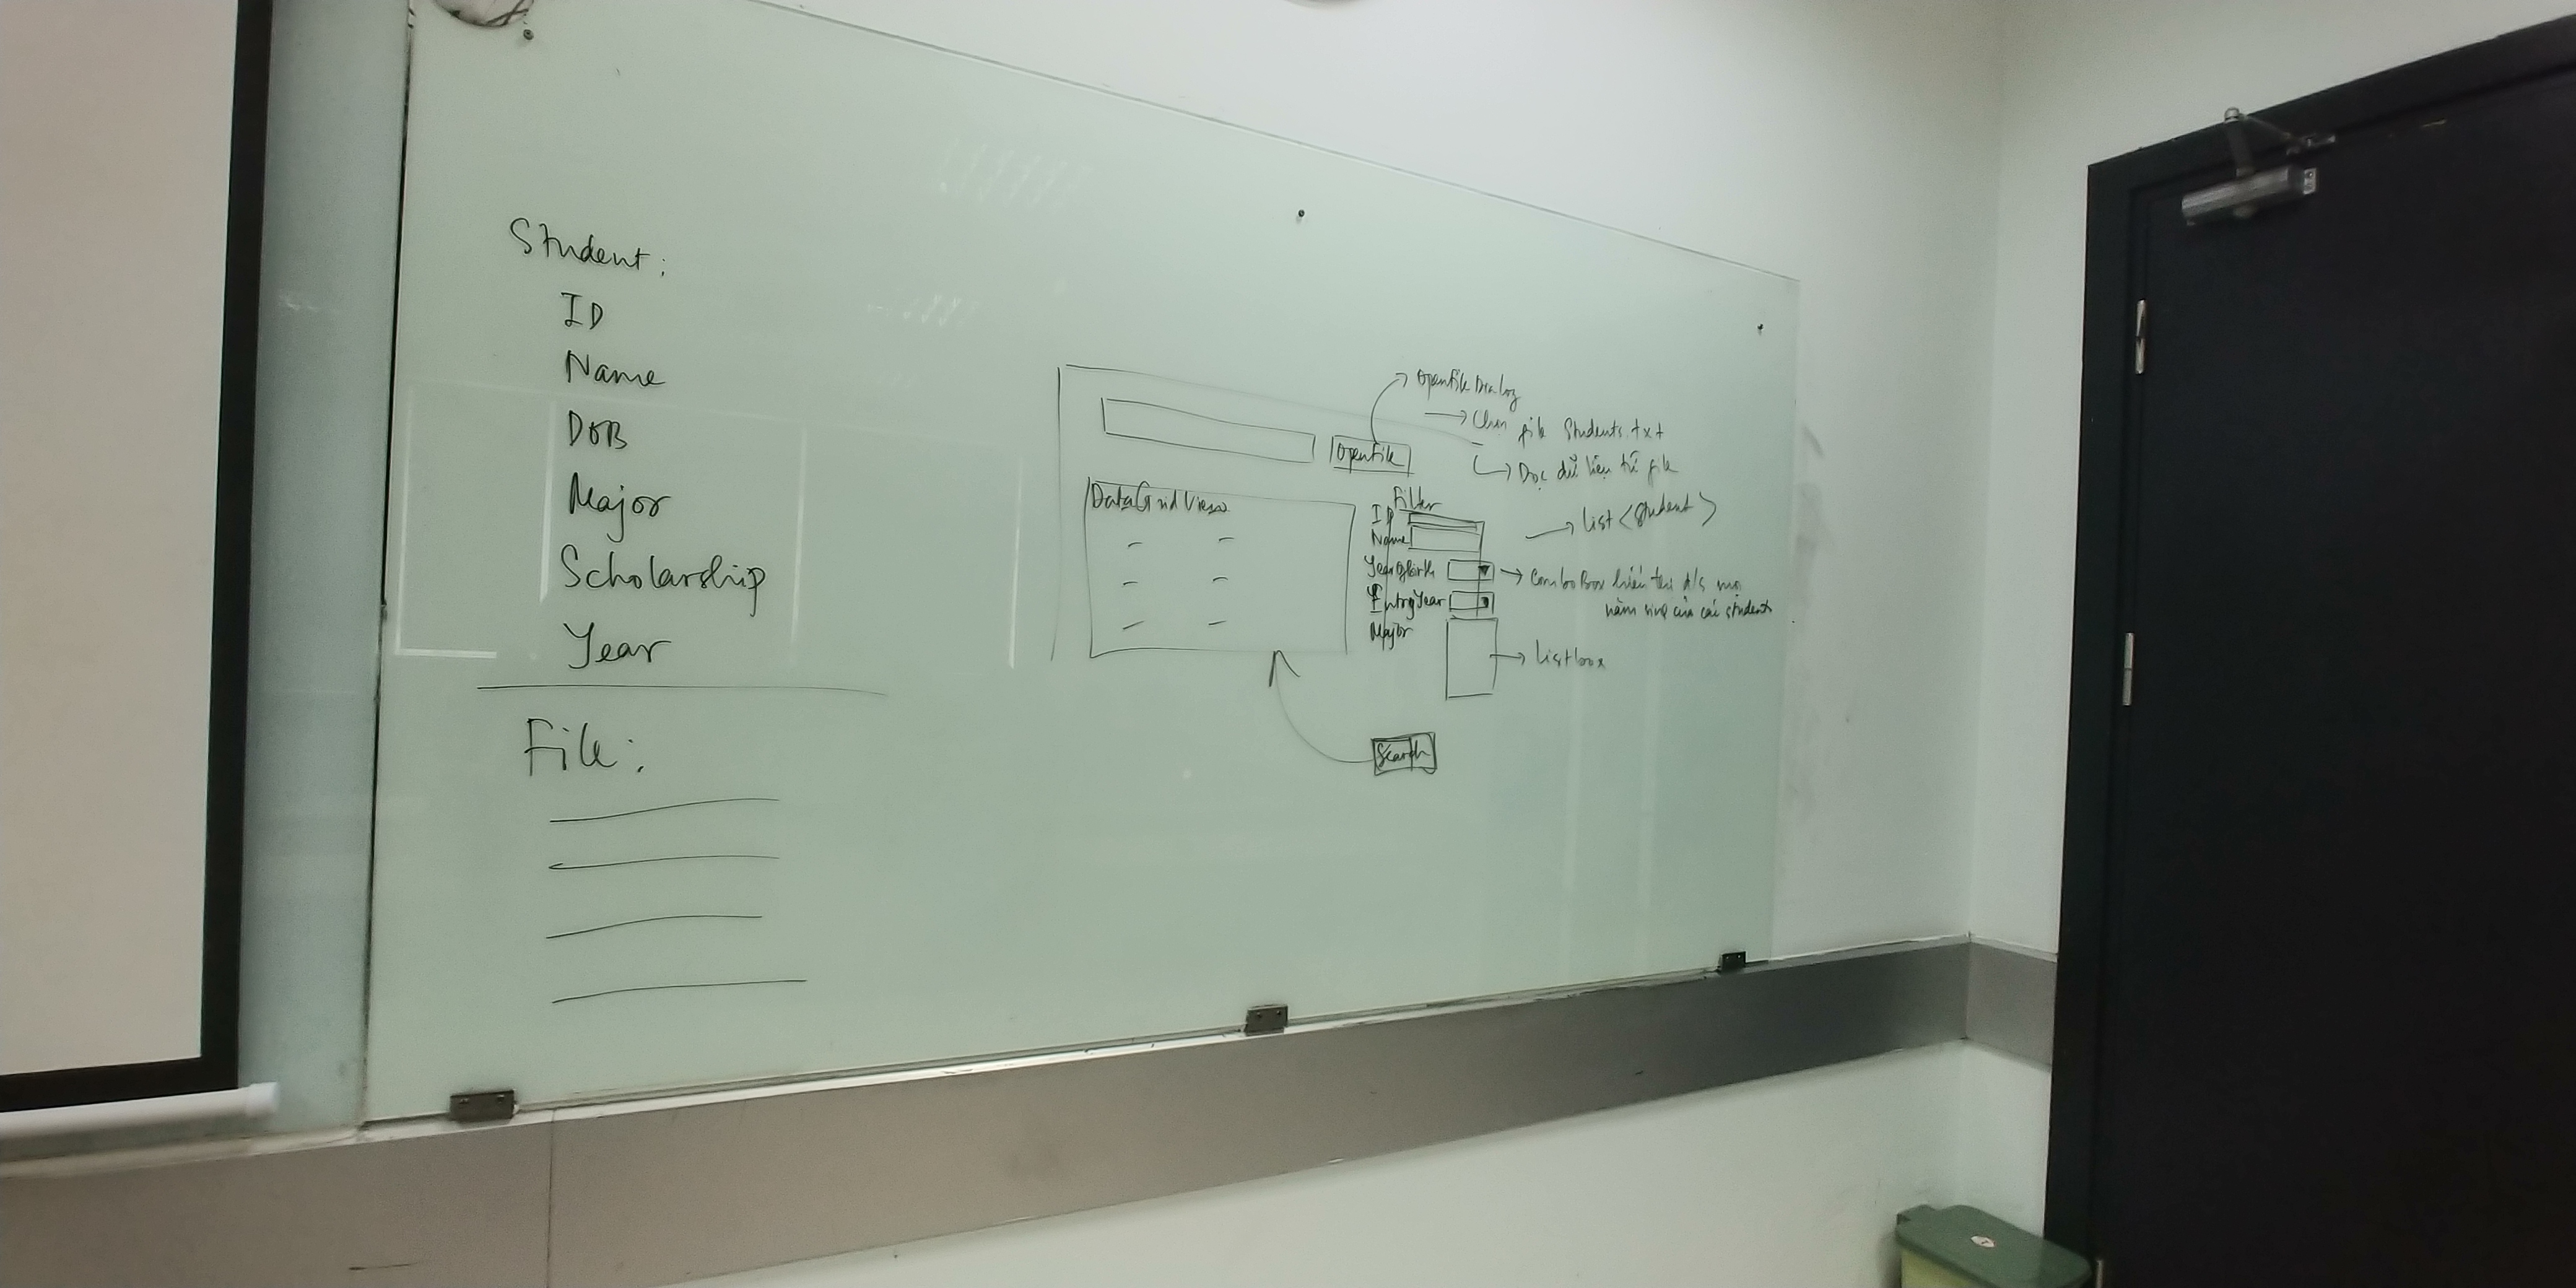 Student:
ID
Name
DOB
Major
Scholarship
Year
File:
OpenFile
OpenFileDialog
Chọn file Students.txt
Đọc dữ liệu từ file
List <Student>
DataGridView
Filter
ID
Name
YearOfBirth
EntryYear
Major
ComboBox hiển thị d/s mọi
năm sinh của các student
Listbox
Search